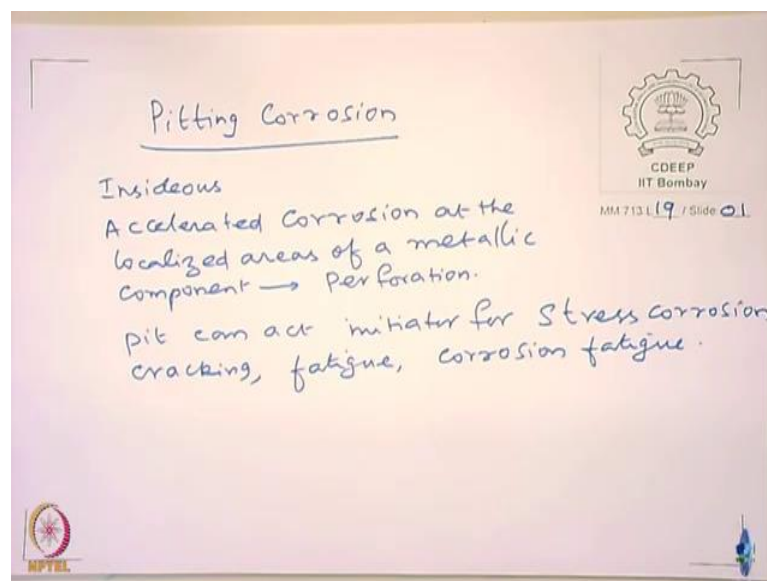 Pitting Corrosion
CDEEP
IIT Bombay
MM 713 L 19 / Slide 01
Insideous
Accelerated Corrosion at the
localized areas of a metallic
component → Perforation.
pit can act initiator for Stress corrosion
cracking, fatigue, corrosion fatigue.
NPTEL